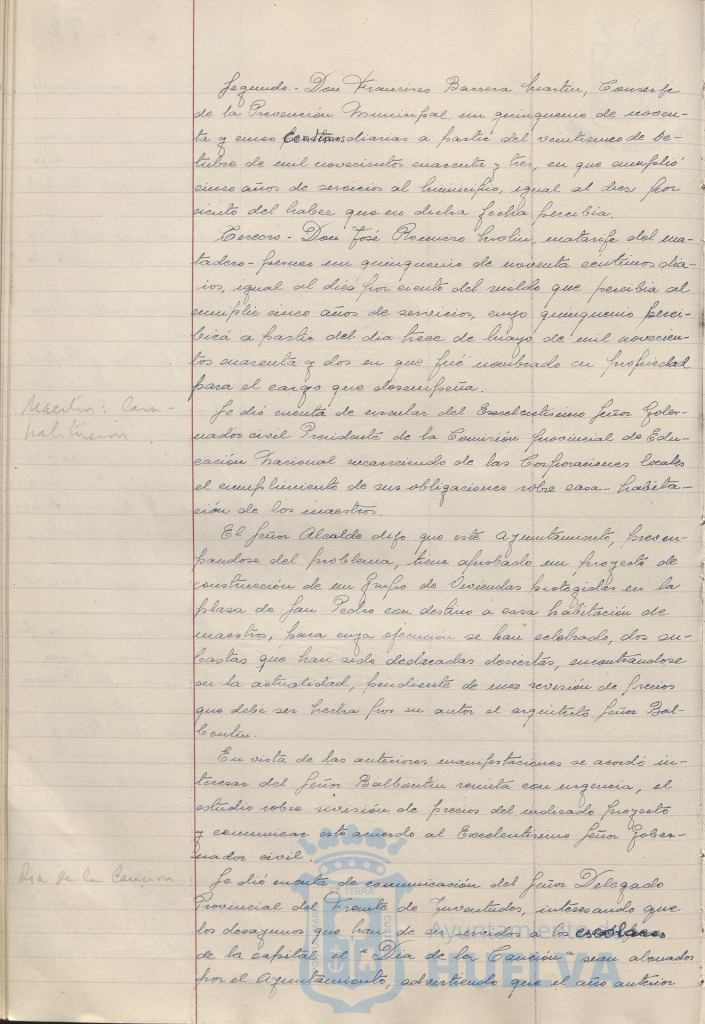 Segundo.- Don Francisco Barrera Martin, Conserje
de la Prevención Municipal, un quinquenio de noven-
ta y cinco centimos diarias a partir del veintiuno de Oc-
tubre de mil novecientos cuarenta y tres, en que cumplió
cinco años de servicios al Municipio, igual al diez por
ciento del haber que en dicha fecha percibia.
Tercero.- Don José Romero Martin, matarife del ma-
tadero- un quinquenio de noventa centimos dia-
rios, igual al diez por ciento del sueldo que percibia al
cumplir cinco años de servicios, cuyo quinquenio perci-
birá a partir del dia trece de Mayo de mil novecien-
tos cuarenta y dos en que fué nombrado en propiedad
para el cargo que desempeña.
Maestros: Casa-
habitación
Se dió cuenta de circular del Excelentisimo Señor Gober-
nador civil Presidente de la Comisión provincial de Edu-
cación Nacional recareciendo de las Corporaciones locales
el cumplimiento de sus obligaciones sobre casa-habita-
ción de los maestros.
El Señor Alcalde dijo que este Ayuntamiento, preocu-
pandose del problema, tiene aprobado un proyecto de
construcción de un Grupo de Viviendas protegidas en la
plaza de San Pedro con destino a casa habitación de
maestros, para cuya ejecución se han celebrado, dos su-
bastas que han sido declaradas desiertas, encontrandose
en la actualidad, pendiente de una revisión de precios
que debe ser hecha por su autor el arquitecto Señor Bal-
bontin.
En vista de las anteriores manifestaciones se acordó in-
teresar del Señor Balbontin remita con urgencia, el
estudio sobre revisión de precios del indicado proyecto
y comunicar este acuerdo al Excelentisimo Señor Gober-
nador civil.
Dia de la Canción
Se dió cuenta de comunicación del Señor Delegado
Provincial del Frente de Juventudes, interesando que
los desayunos que han de ser servidos a los escolares
de la capital el "Dia de la Canción" sean abonados
por el Ayuntamiento, advirtiendo que el año anterior
Ayuntamiento de
HUELVA